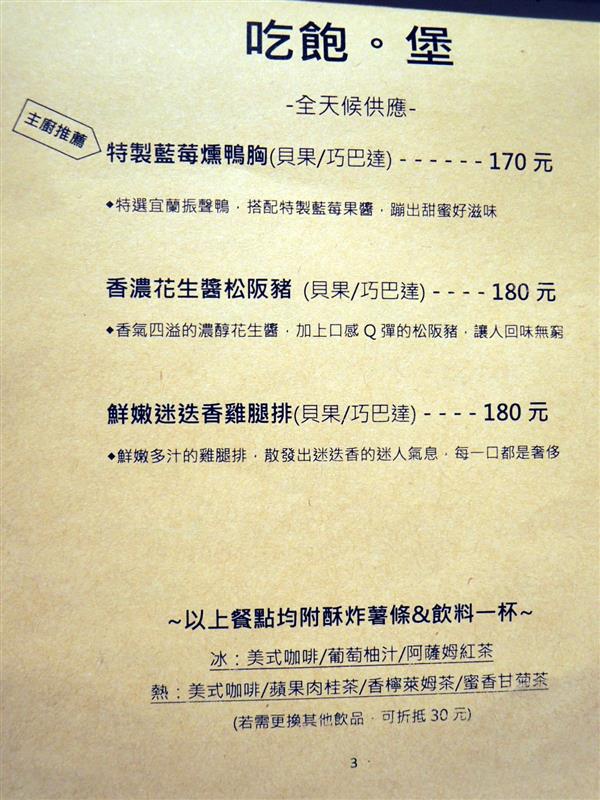 吃飽。堡
-全天候供應-
主廚推薦
特製藍莓燻鴨胸(貝果/巧巴達) - - - - - - 170 元
◆特選宜蘭振聲鴨，搭配特製藍莓果醬，蹦出甜蜜好滋味
香濃花生醬松阪豬 (貝果/巧巴達) - - - - 180 元
◆香氣四溢的濃醇花生醬，加上口感 Q 彈的松阪豬，讓人回味無窮
鮮嫩迷迭香雞腿排(貝果/巧巴達) - - - - 180 元
◆鮮嫩多汁的雞腿排，散發出迷迭香的迷人氣息，每一口都是奢侈
~以上餐點均附酥炸薯條&飲料一杯~
冰：美式咖啡/葡萄柚汁/阿薩姆紅茶
熱：美式咖啡/蘋果肉桂茶/香檸萊姆茶/蜜香甘菊茶
(若需更換其他飲品，可折抵 30 元)
3